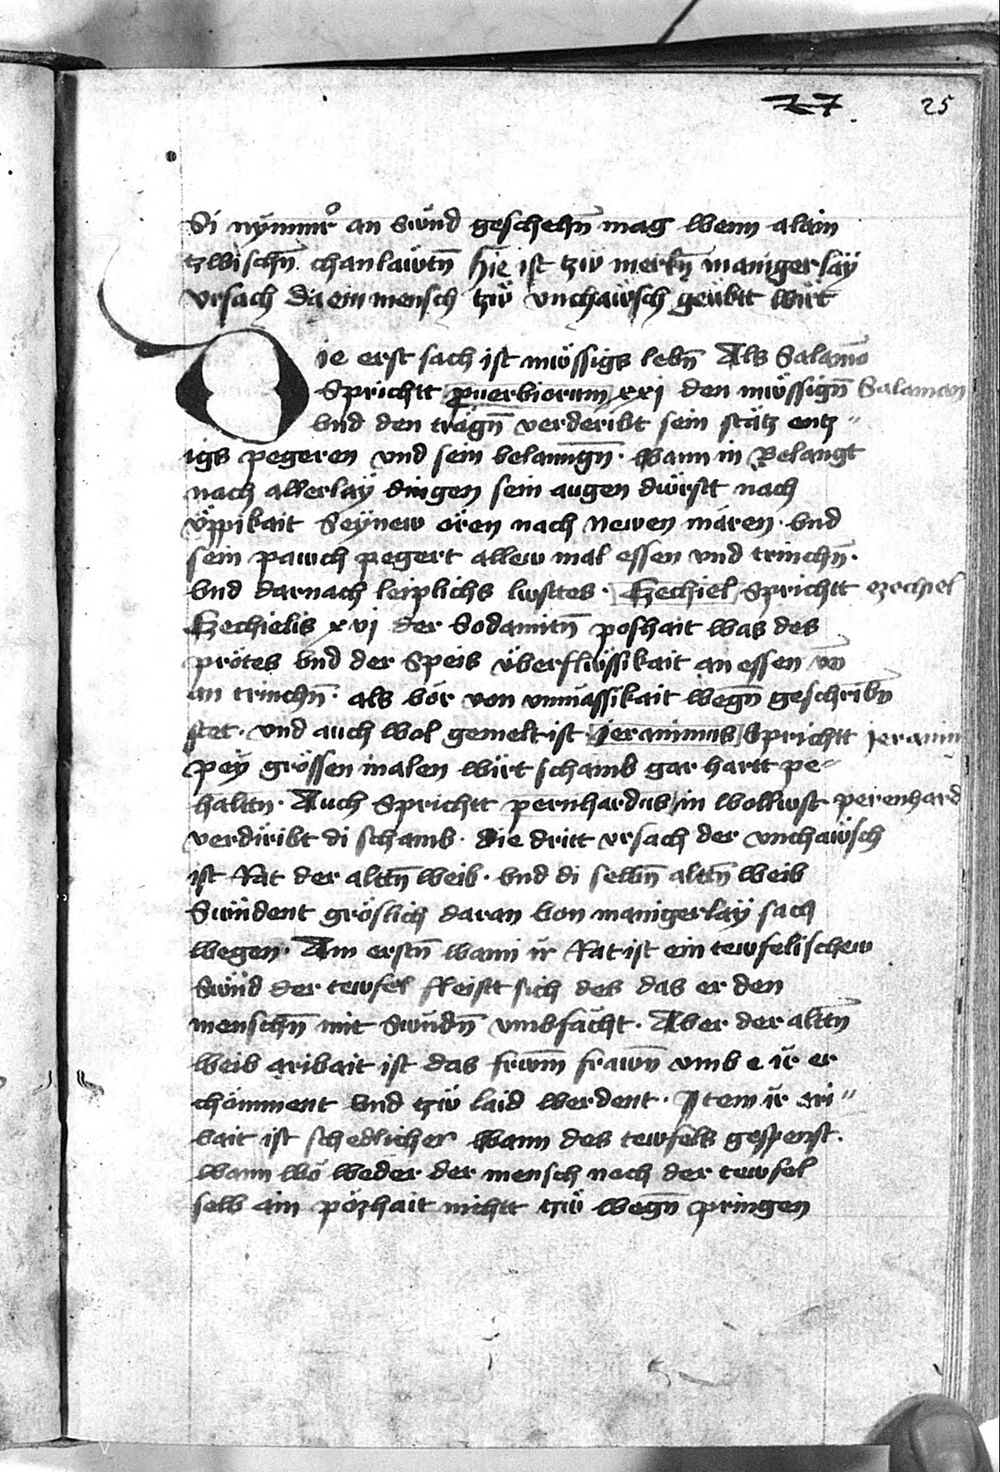 27 25
Si nÿmmer an swnd geschehn̄ mag wenn alain
tzwischn̄ chanlawtn̄ Hie ist tzw merkn̄ manigerlaÿ
vrsach da ein mensch tzw vnchawsch geübtt wirt
Die erst sach ist mwössigs lebn̄ Als Salamo
Sprichtt puerbiorum xxj den mwössign̄ Salamon
vnd den trägn̄ verderibt sein stätz entz〃
igs pegeren vnd sein belanngn̄. Wann in Belangt
nach allerlaÿ dingen sein augen dwrstt nach
vppikait Seÿnew oren nach newen mären. vnd
sein pawch pegert allew mal essen vnd trinchn̄.
vnd darnach leiplichs lwsttes. Ezechiel Sprichtt ezechiel
Ezechielis xvj der Sodamitn̄ poshait was des
prötes vnd der Speis vberflwssikait an essen vn̄
an trinchn̄. als vor von vnmässikait wegn̄ geschribn̄
stet. vnd auch wol gemelt ist Jeranimus Sprichtt jeranim
peÿ grössen malen wirt schamb gar hartt pe〃
haltn̄. Auch Sprichtt pernhardus in wollwst perenhard
verdiribt di schamb. Die dritt vrsach der vnchawsch
ist Rat der altn̄ weib. vnd di selbn̄ altn̄ weib
Swndent gröslich daran von manigerlaÿ sach
wegen. Am erstn̄ wann ir Rat ist ein tewfelischew
Swnd der tewfel fleistt sich des das er den
menschn̄ mit Swndn̄ vmbfächt. Aber der altn̄
weib aribait ist das frwm̄ frawn̄ vmb e ir er
chömment vnd tzw laid werdent. Item ir ari〃
bait ist schedlicher Wann des tewfels gespenst.
wann wo weder der mensch noch der tewfel
selb ain pözhait nichtt tzw wegn̄ pringen